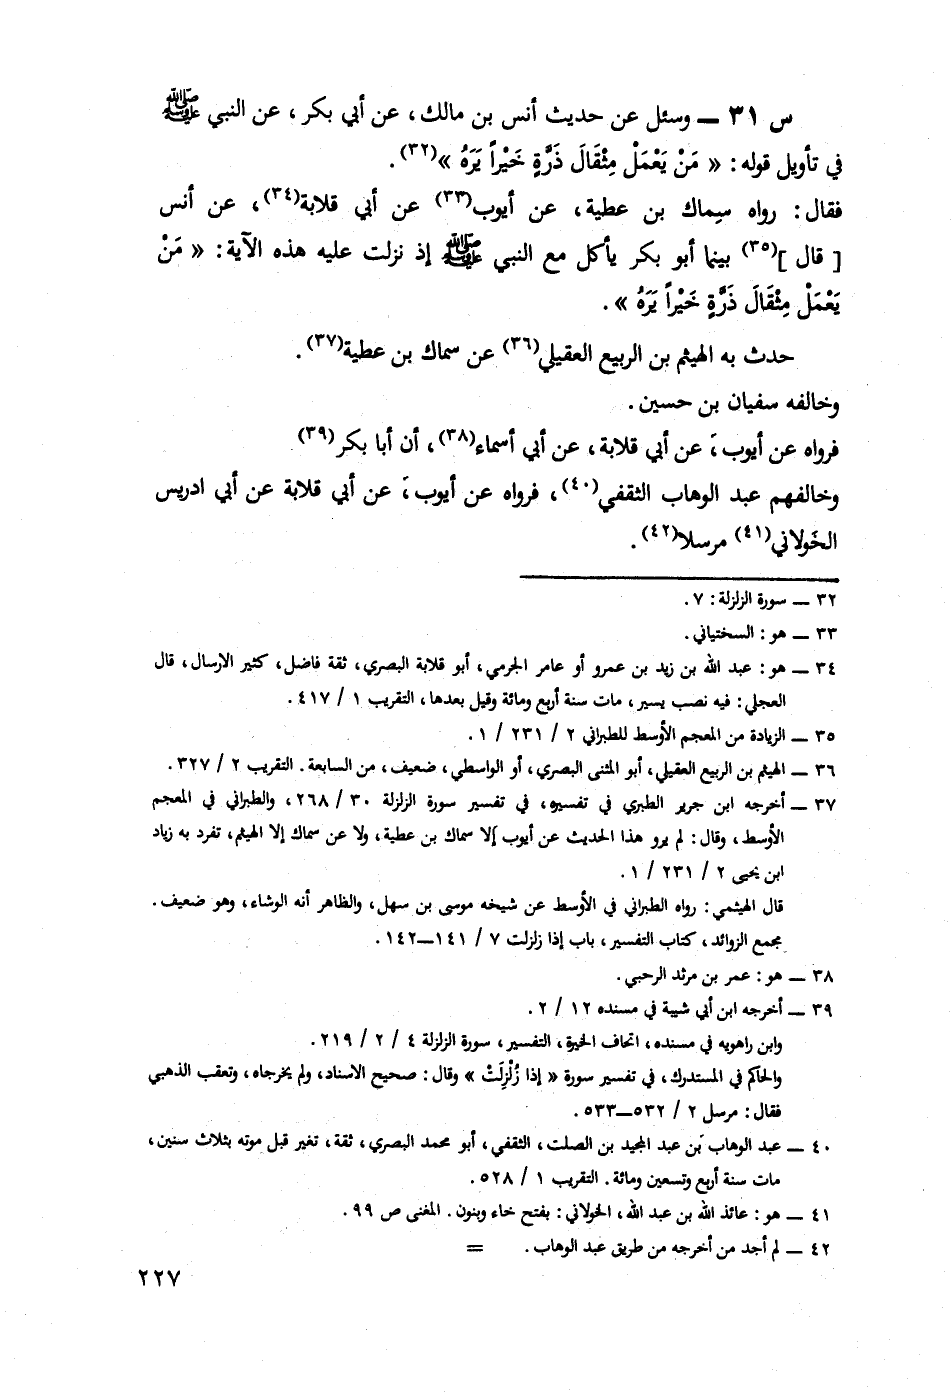 س ٣١ ــ وسئل عن حديث أنس بن مالك، عن أبي بكر، عن النبي ﷺ
في تأويل قوله: « مَنْ يَعْمَلْ مِثْقَالَ ذَرَّةٍ خَيْراً يَرَهُ »(٣٢).
فقال: رواه سِماك بن عطية، عن أيوب(٣٣) عن أبي قلابة(٣٤)، عن أنس
[ قال ](٣٥) بينما أبو بكر يأكل مع النبي ﷺ إذ نزلت عليه هذه الآية: « مَنْ
يَعْمَلْ مِثْقَالَ ذَرَّةٍ خَيْراً يَرَهُ ».
حدث به الهيثم بن الربيع العقيلي(٣٦) عن سماك بن عطية(٣٧).
وخالفه سفيان بن حسين.
فرواه عن أيوب، عن أبي قلابة، عن أبي أسماء(٣٨)، أن أبا بكر(٣٩)
وخالفهم عبد الوهاب الثقفي(٤٠)، فرواه عن أيوب، عن أبي قلابة عن أبي ادريس
الخَولاني(٤١) مرسلا(٤٢).
٣٢ ــ سورة الزلزلة: ٧.
٣٣ ــ هو: السختياني.
٣٤ ــ هو: عبد الله بن زيد بن عمرو أو عامر الجرمي، أبو قلابة البصري، ثقة فاضل، كثير الارسال، قال
العجلي: فيه نصب يسير، مات سنة أربع ومائة وقيل بعدها، التقريب ١ / ٤١٧.
٣٥ ــ الزيادة من المعجم الأوسط للطبراني ٢ / ٢٣١ / ١.
٣٦ ــ الهيثم بن الربيع العقيلي، أبو المثنى البصري، أو الواسطي، ضعيف، من السابعة. التقريب ٢ / ٣٢٧.
٣٧ ــ أخرجه ابن جرير الطبري في تفسيره، في تفسير سورة الزلزلة ٣٠ / ٢٦٨، والطبراني في المعجم
الأوسط، وقال: لم يرو هذا الحديث عن أيوب إلا سماك بن عطية، ولا عن سماك إلا الهيثم، تفرد به زياد
ابن يحيى ٢ / ٢٣١ / ١.
قال الهيثمي: رواه الطبراني في الأوسط عن شيخه موسى بن سهل، والظاهر أنه الوشاء، وهو ضعيف.
مجمع الزوائد، كتاب التفسير، باب إذا زلزلت ٧ / ١٤١ــ١٤٢.
٣٨ ــ هو: عمر بن مرثد الرحبي.
٣٩ ــ أخرجه ابن أبي شيبة في مسنده ١٢ / ٢.
وابن راهويه في مسنده، اتحاف الخيرة، التفسير، سورة الزلزلة ٤ / ٢ / ٢١٩.
والحاكم في المستدرك، في تفسير سورة « إذا زُلْزِلَتْ » وقال: صحيح الاسناد، ولم يخرجاه، وتعقب الذهبي
فقال: مرسل ٢ / ٥٣٢ــ٥٣٣.
٤٠ ــ عبد الوهاب بن عبد المجيد بن الصلت، الثقفي، أبو محمد البصري، ثقة، تغير قبل موته بثلاث سنين،
مات سنة أربع وتسعين ومائة. التقريب ١ / ٥٢٨.
٤١ ــ هو: عائذ الله بن عبد الله، الخولاني: بفتح خاء وبنون. المغنى ص ٩٩.
٤٢ ــ لم أجد من أخرجه من طريق عبد الوهاب. =
٢٢٧